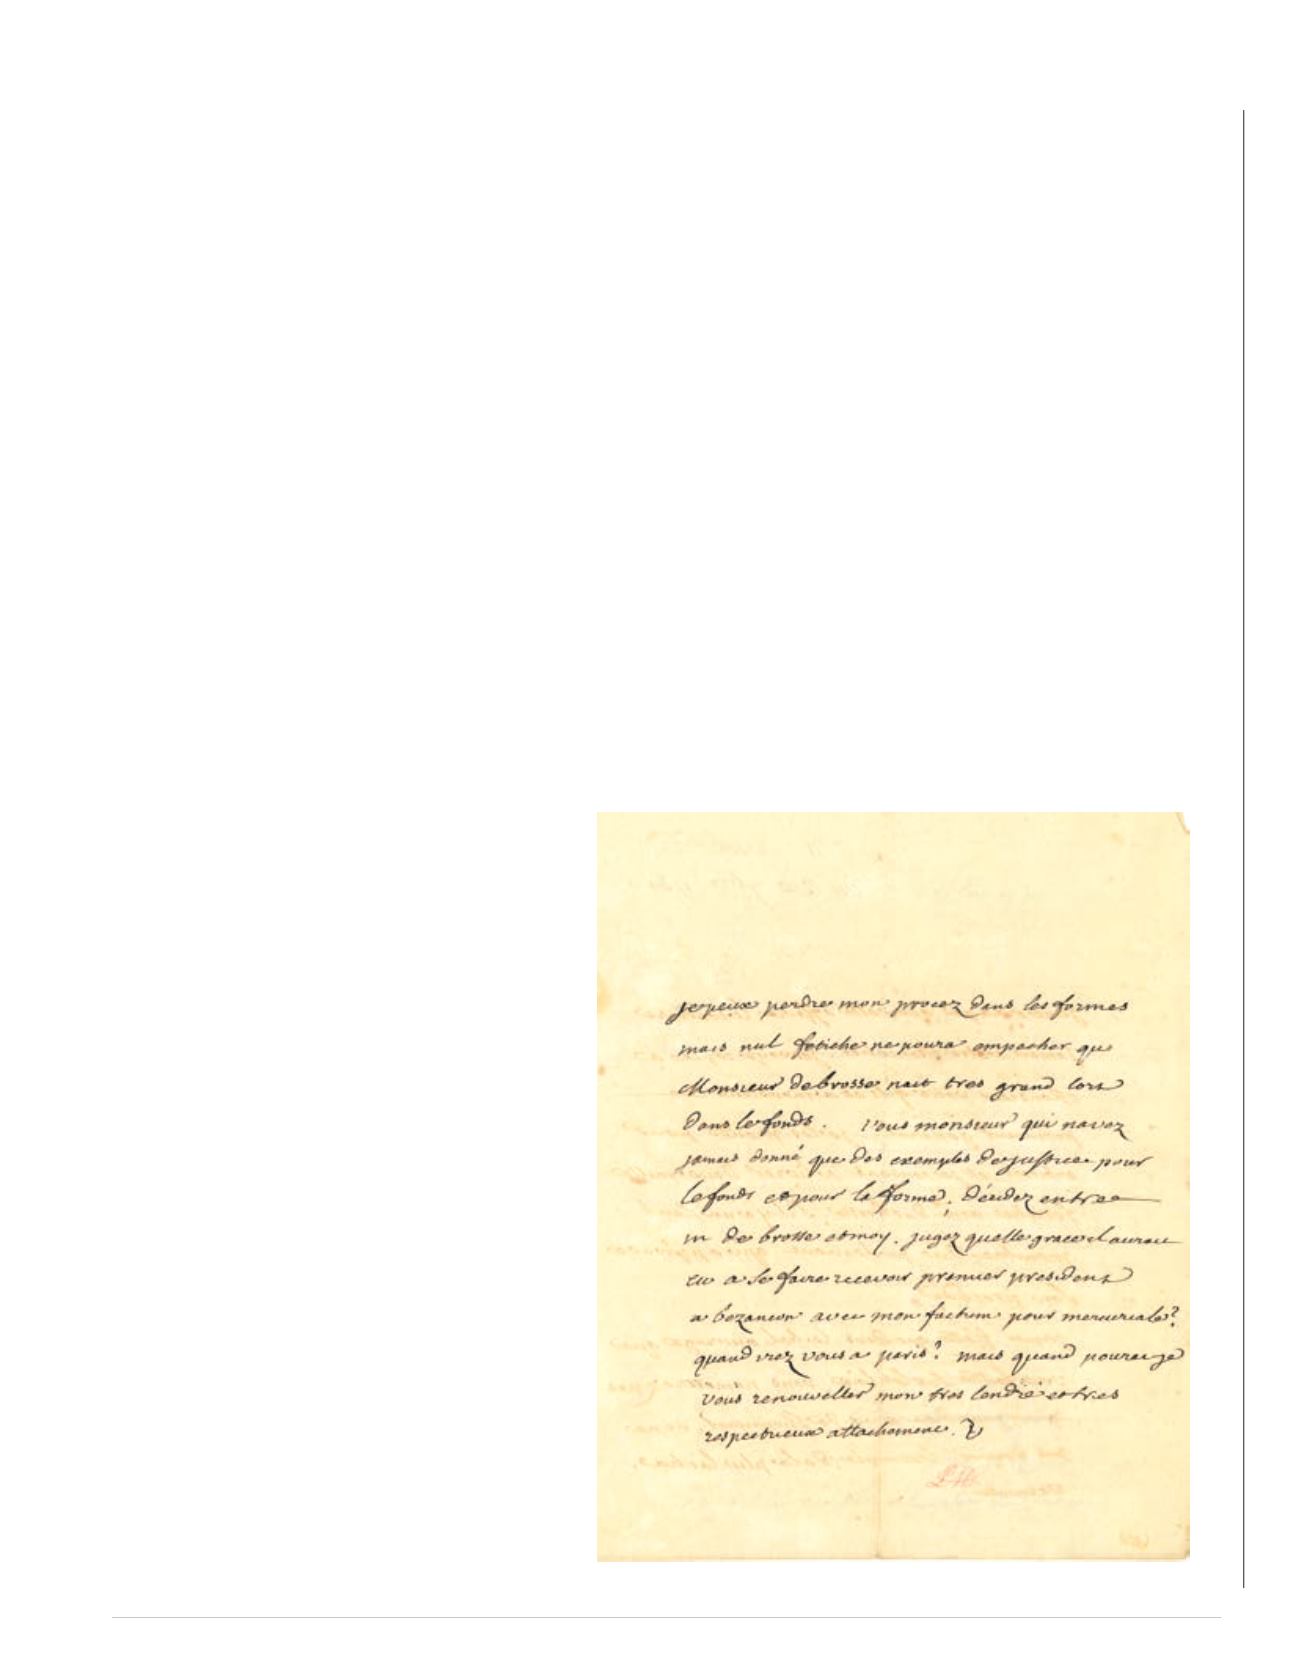 je peux perdre mon procez dans les formes
mais nul fetiche ne poura empecher que
Monsieur de brosse nait tres grand tort
dans le fonds. vous monsieur qui navez
jamais donné que des exemples de justice pour
le fonds et pour la forme, décidez entre
m de brosse et moy. jugez quelle grace il auroit
eu a se faire recevoir premier president
a bezancon avec mon factum pour mercuriale?
quand irez vous a paris? mais quand pourai je
vous renouveller mon tres tendre et tres
respectueux attachement.